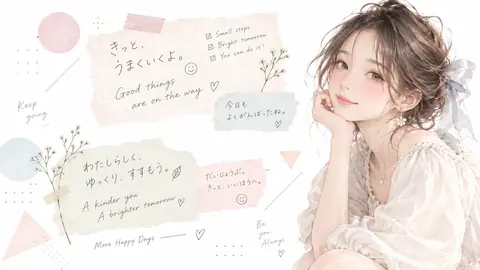 きっと、
うまくいくよ。
Good things
are on the way
Small steps
Bright tomorrow
You can do it!
Keep
going
今日も
よくがんばったね。
わたしらしく、
ゆっくり、すすもう。
A kinder you
A brighter tomorrow
だいじょうぶ。
きっと、いいほうへ。
More Happy Days
Be
you
Always